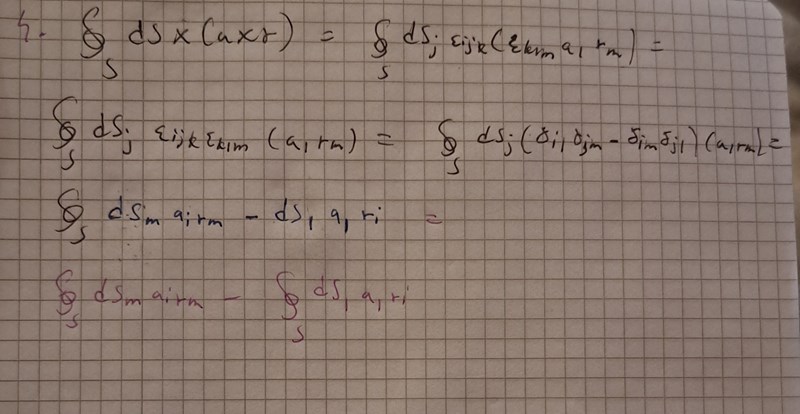 4. ∯_S dS × (a × r) = ∯_S dS_j ε_ijk (ε_klm a_l r_m) =
∯_S dS_j ε_ijk ε_klm (a_l r_m) = ∯_S dS_j (δ_il δ_jm - δ_im δ_jl) (a_l r_m) =
∯_S dS_m a_i r_m - dS_l a_l r_i =
∯_S dS_m a_i r_m - ∯_S dS_l a_l r_i